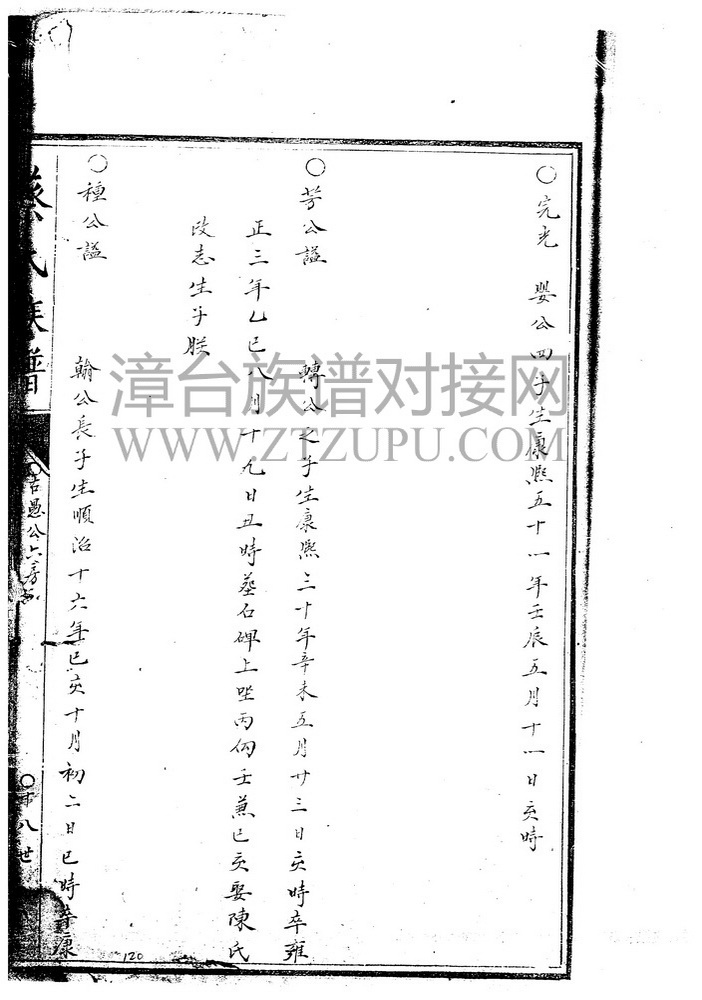 ○完光　嬰公四子生康熙五十一年壬辰五月十一日亥時
○芳公謚　轉公之子生康熙三十年辛未五月廿三日亥時卒雍
正三年乙巳八月十九日丑時葬石碑上坐丙向壬兼巳亥娶陳氏
改志生子朕
○種公謚　翰公長子生順治十六年己亥十月初二日巳時 康
氏族譜
愚公六房
○十八世
120
漳台族谱对接网
WWW.ZTZUPU.COM